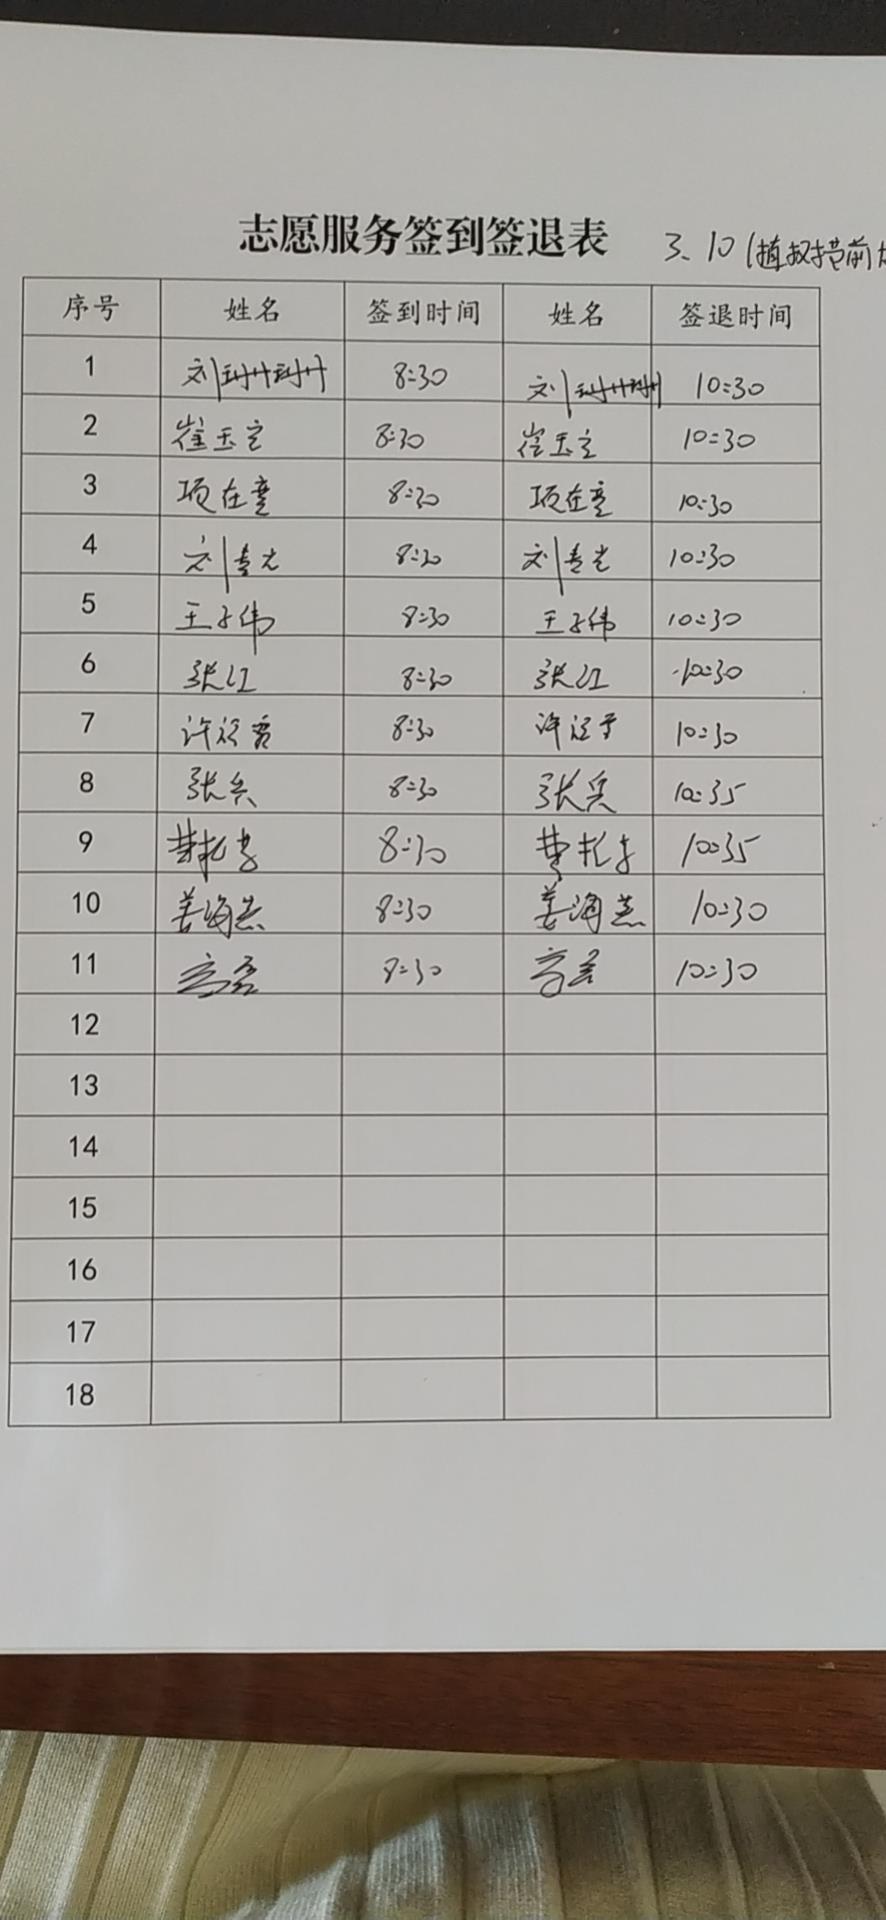 志愿服务签到签退表 3.10(植
序号 姓名 签到时间 姓名 签退时间
1 刘珊珊 8:30 刘珊珊 10:30
2 崔玉 8:30 崔玉 10:30
3 项在 8:30 项在 10:30
4 刘 8:30 刘 10:30
5 王子伟 8:30 王子伟 10:30
6 张红 8:30 张红 10:30
7 许 8:30 许 10:30
8 张兵 8:30 张兵 10:35
9 8:30 10:35
10 姜海燕 8:30 姜海燕 10:30
11 8:30 10:30
12
13
14
15
16
17
18